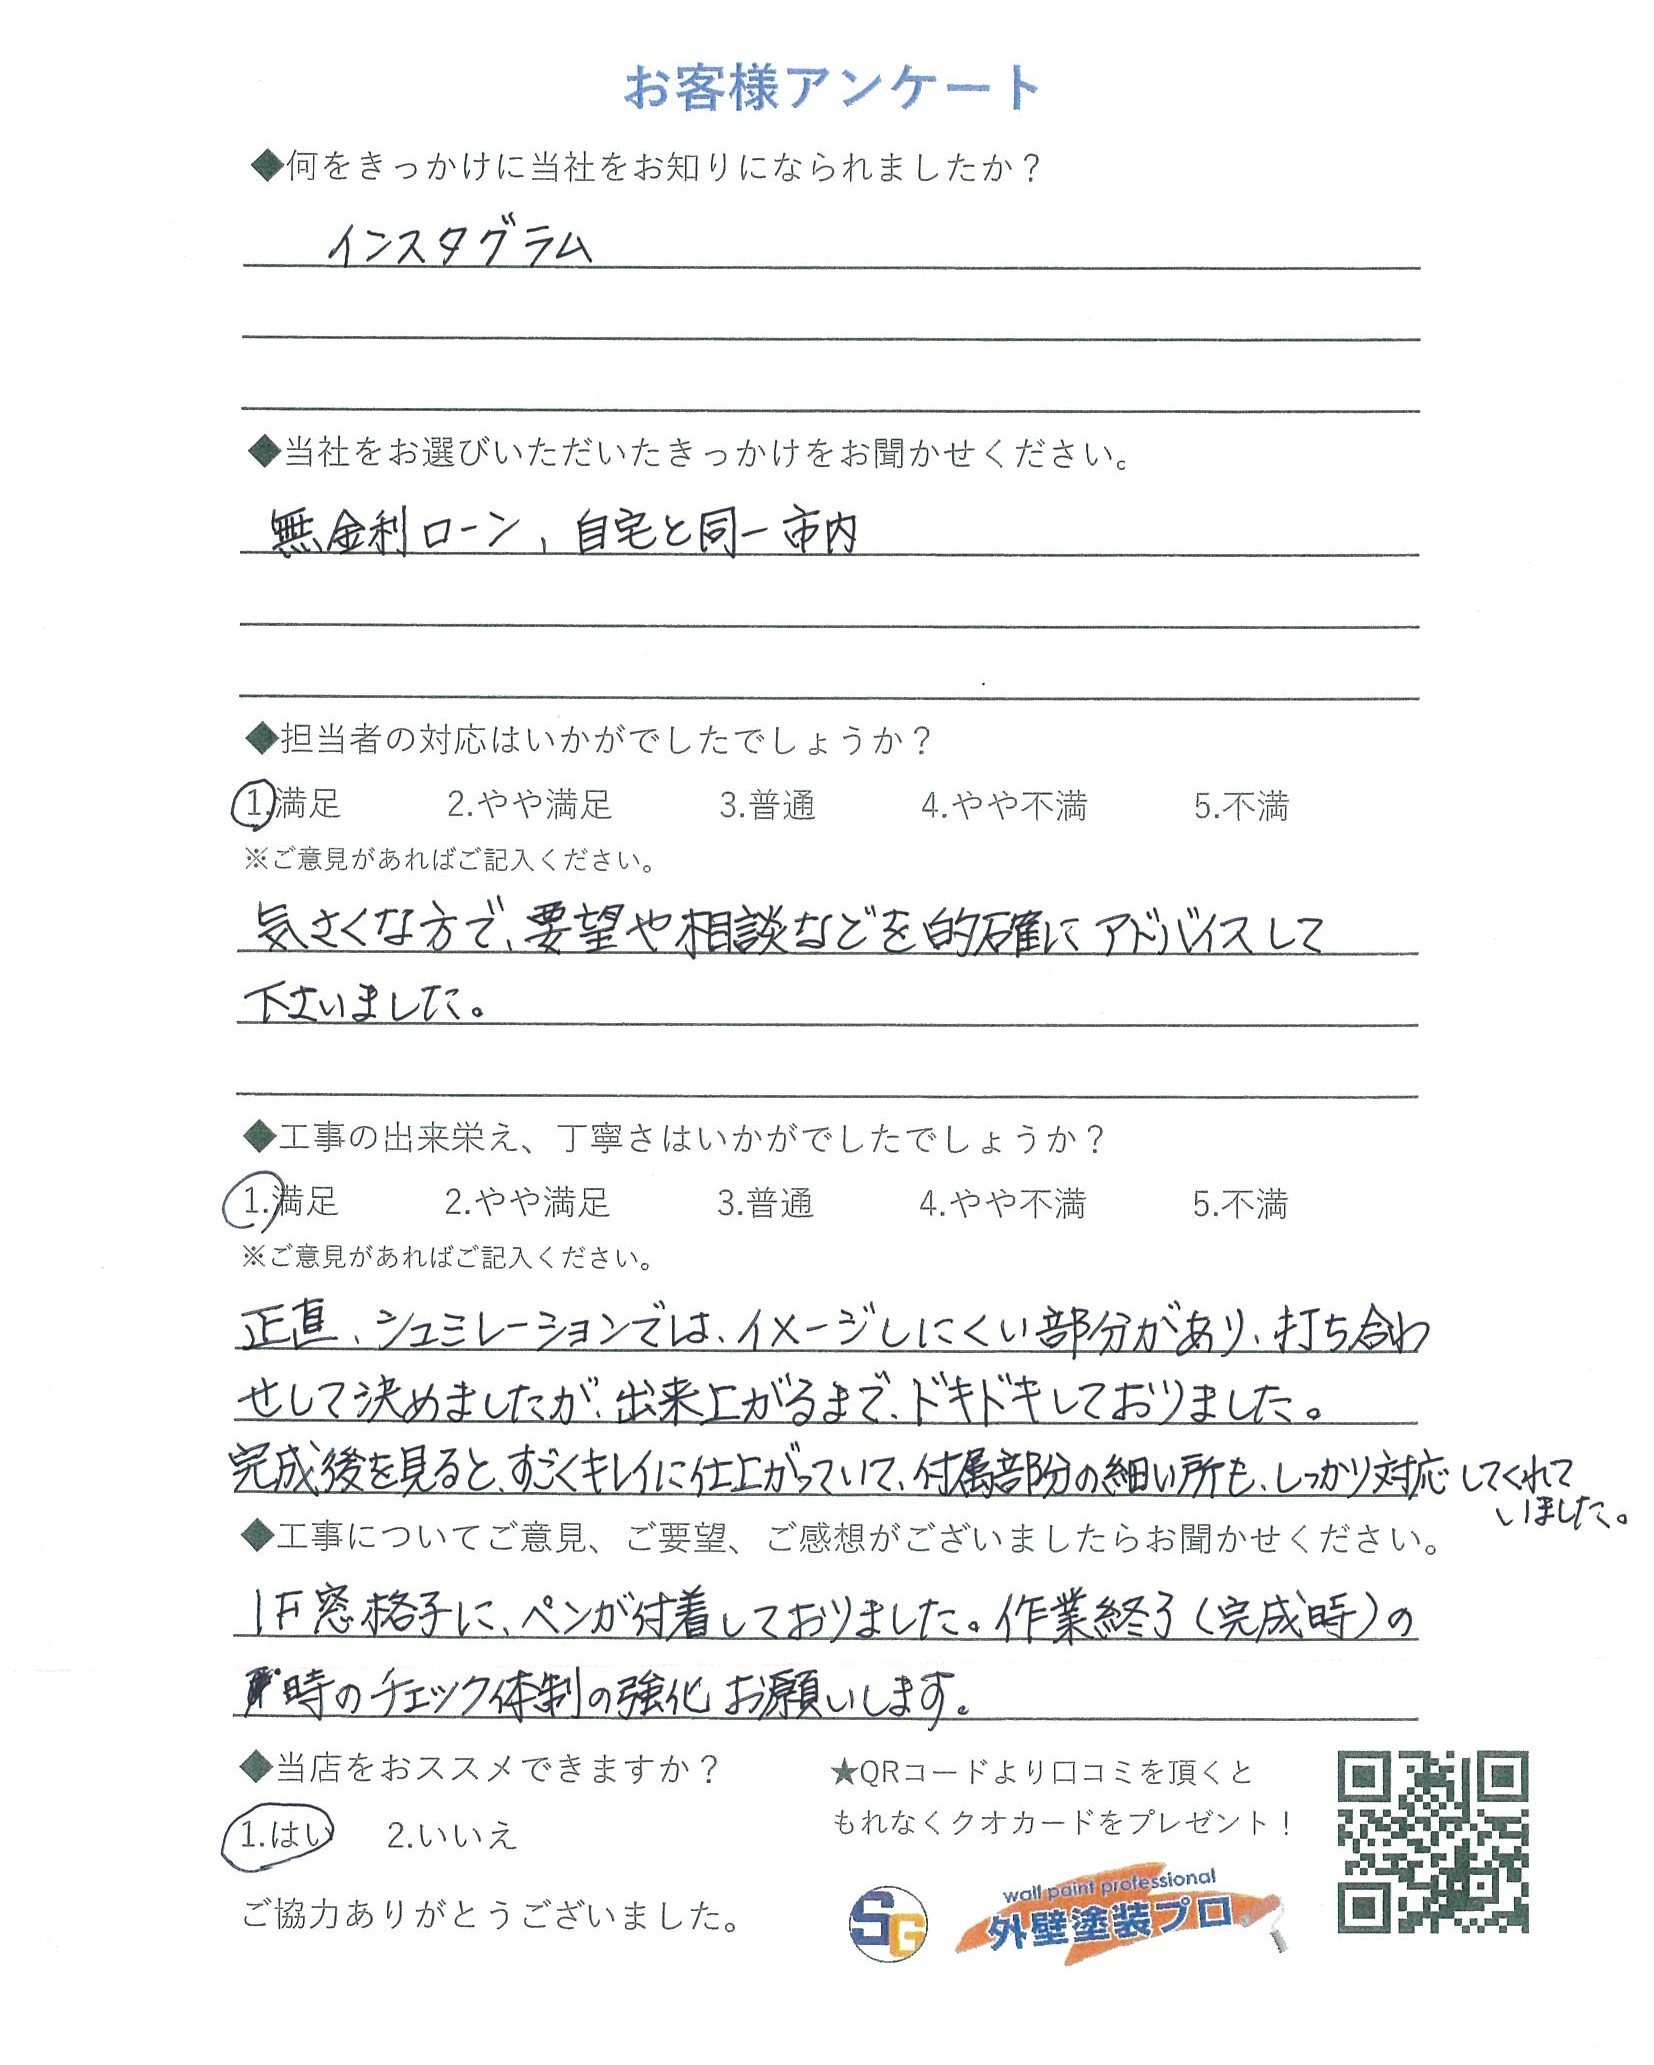 お客様アンケート
◆何をきっかけに当社をお知りになられましたか？
インスタグラム
◆当社をお選びいただいたきっかけをお聞かせください。
無金利ローン、自宅と同一市内
◆担当者の対応はいかがでしたでしょうか？
1.満足 2.やや満足 3.普通 4.やや不満 5.不満
※ご意見があればご記入ください。
気さくな方で、要望や相談などを的確にアドバイスして
下さいました。
◆工事の出来栄え、丁寧さはいかがでしたでしょうか？
1.満足 2.やや満足 3.普通 4.やや不満 5.不満
※ご意見があればご記入ください。
正直、シュミレーションでは、イメージしにくい部分があり、打ち合わ
せして決めましたが、出来上がるまで、ドキドキしておりました。
完成後を見ると、すごくキレイに仕上がっていて、付属部分の細い所も、しっかり対応してくれて
いました。
◆工事についてご意見、ご要望、ご感想がございましたらお聞かせください。
1F窓格子に、ペンが付着しておりました。作業終了（完成時）の
時のチェック体制の強化お願いします。
◆当店をおススメできますか？
1.はい 2.いいえ
ご協力ありがとうございました。
★QRコードより口コミを頂くと
もれなくクオカードをプレゼント！
SG
wall paint professional
外壁塗装プロ